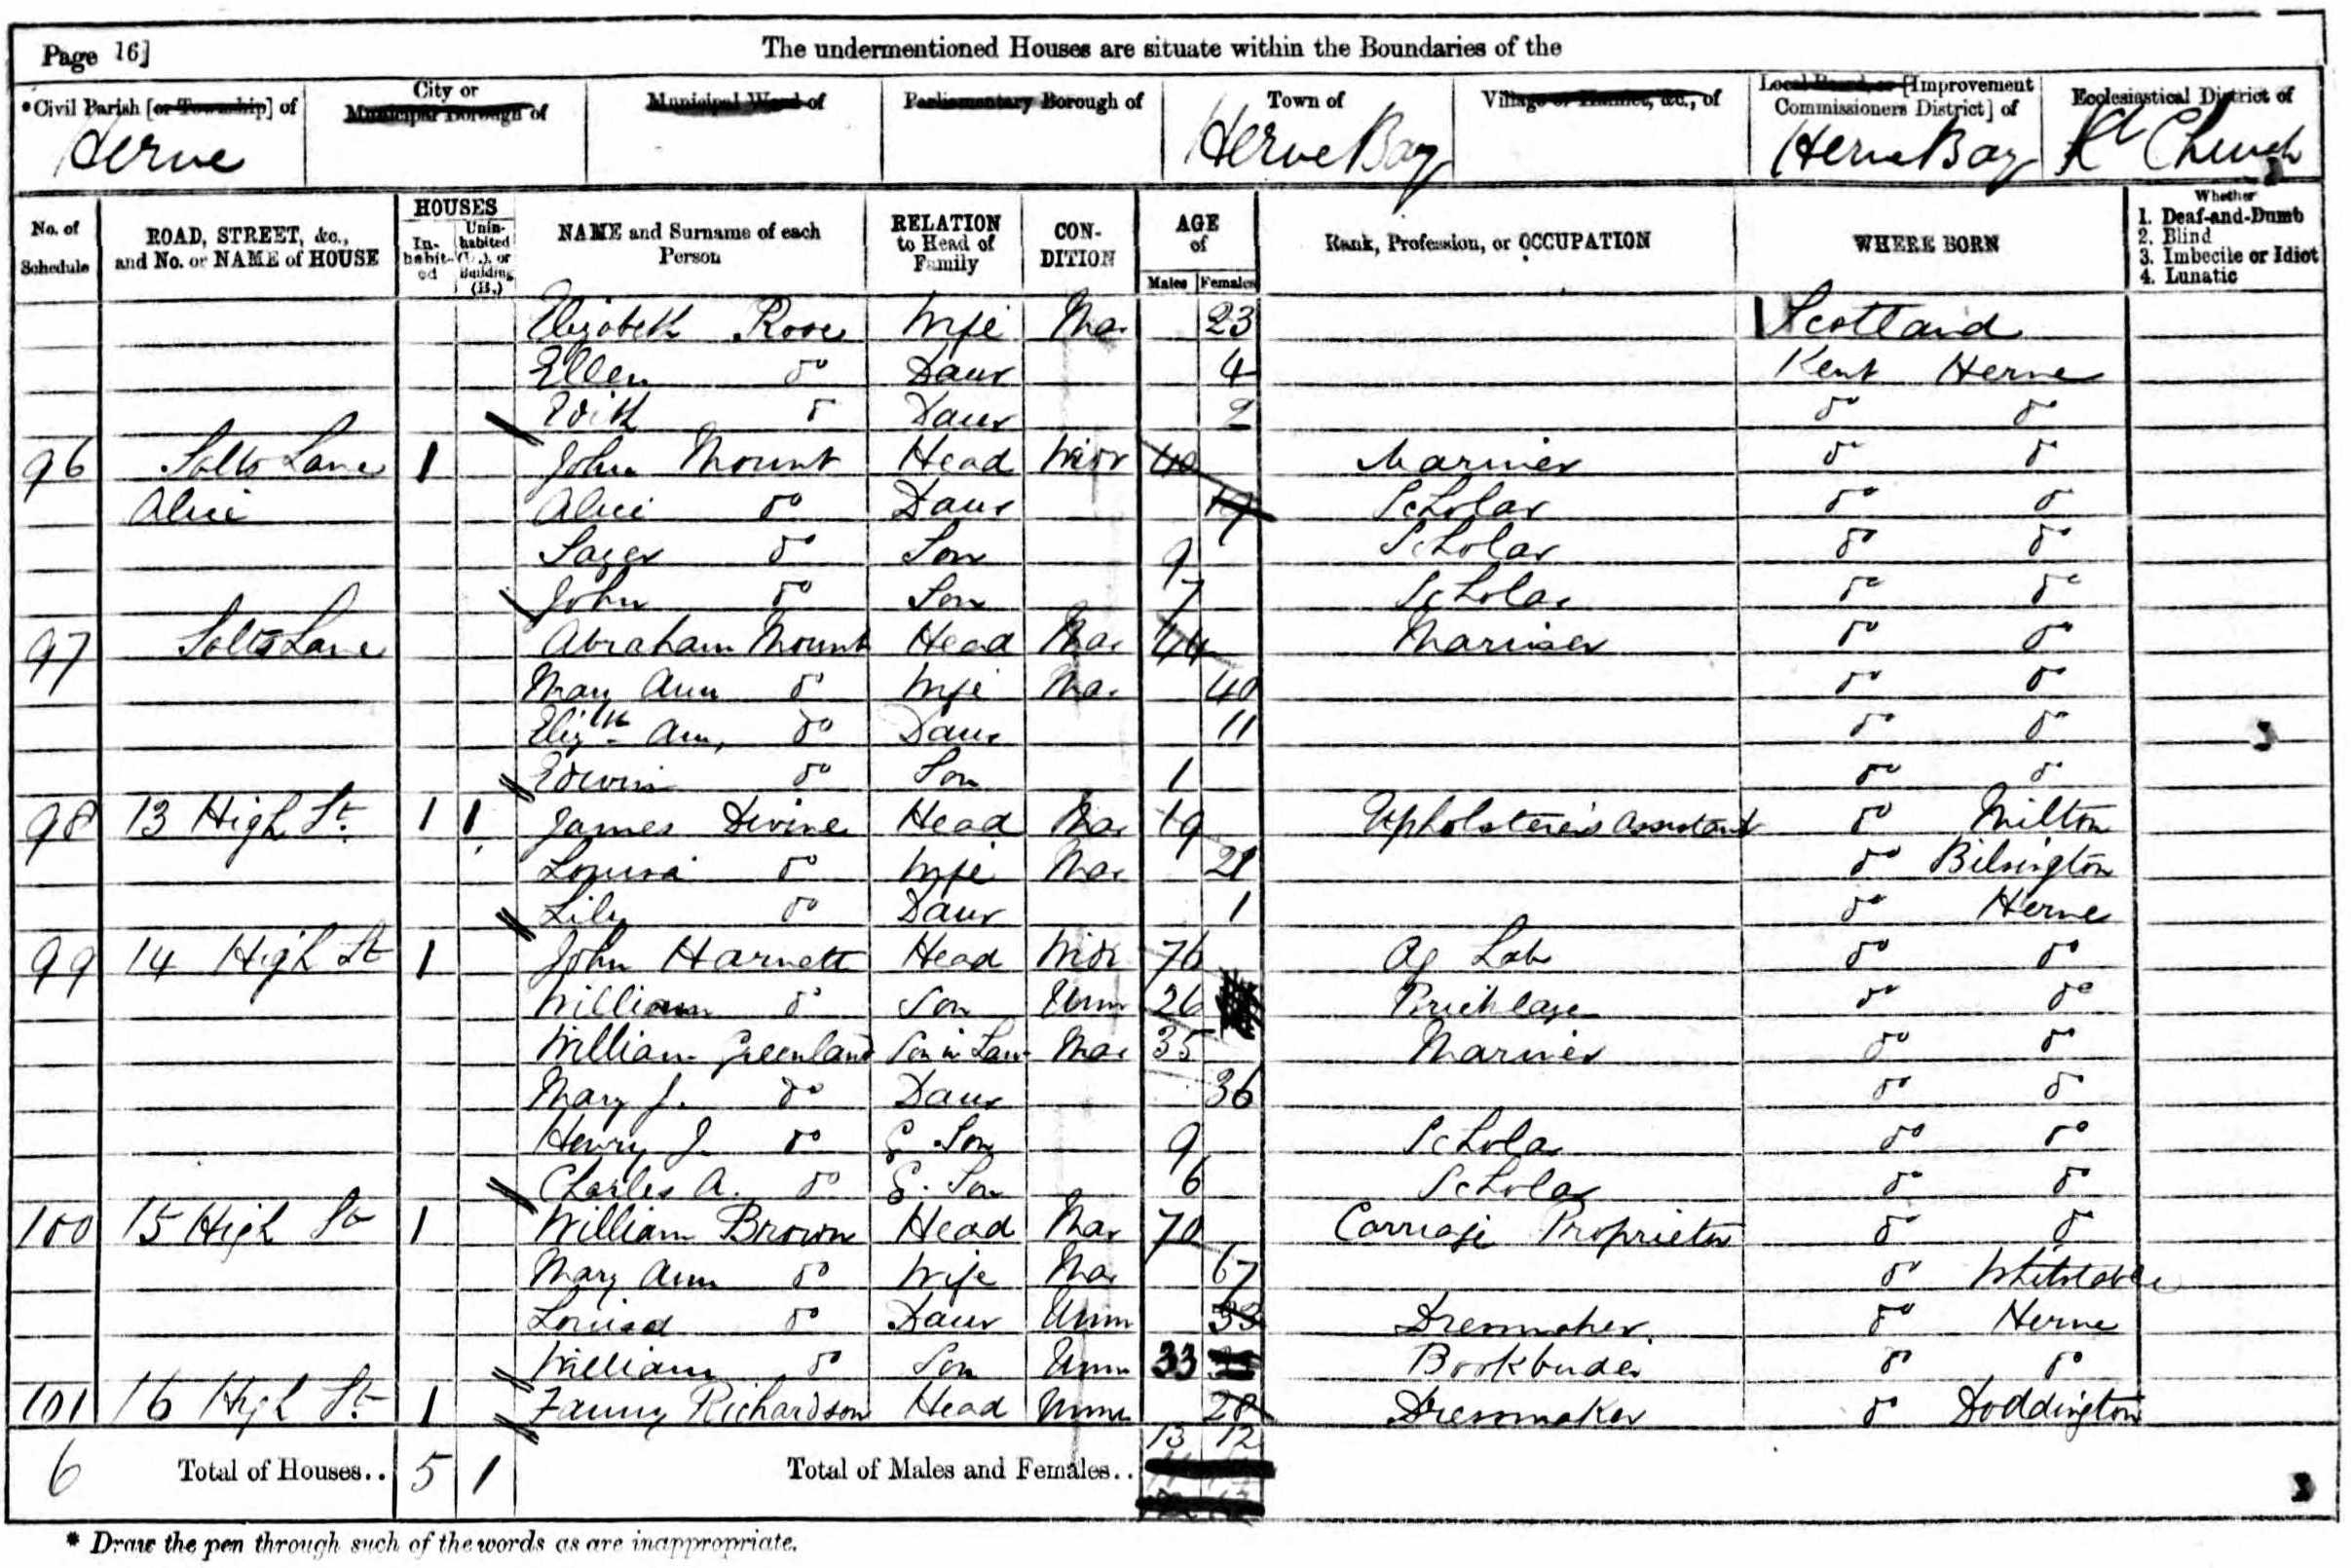 Page 16]
The undermentioned Houses are situate within the Boundaries of the
*Civil Parish [or Township] of
City or Municipal Borough of
Municipal Ward of
Parliamentary Borough of
Town of
Village or Hamlet, &c., of
Local Board, or [Improvement Commissioners District] of
Ecclesiastical District of
Herne Herne Bay Herne Bay Ch Church
No. of Schedule
ROAD, STREET, &c., and No. or NAME of HOUSE
HOUSES
In-habit-ed
Unin-habited (U.), or Building (B.)
NAME and Surname of each Person
RELATION to Head of Family
CON-DITION
AGE of
Males Females
Rank, Profession, or OCCUPATION
WHERE BORN
Whether
1. Deaf-and-Dumb
2. Blind
3. Imbecile or Idiot
4. Lunatic
Elizabeth Rose Wife Mar 23 Scotland
Ellen do Daur 4 Kent Herne
Edith do Daur 2 do do
96 Salts Lane 1 John Mount Head Widr 40 Mariner do do
Alice Alice do Daur Scholar do do
do Son 9 Scholar do do
John do Son 7 Scholar do do
97 Salts Lane Abraham Mount Head Mar 44 Mariner do do
Mary Ann do Wife Mar 40 do do
Elizth Ann, do Daur 11 do do
Edwin do Son 1 do do
98 13 High St. 1 1 James Divine Head Mar 19 Upholsterer's assistant do Milton
Louisa do Wife Mar 21 do Bilsington
Lily do Daur 1 do Herne
99 14 High St 1 John Harnett Head Widr 76 Ag Lab do do
William do Son Unm 26 Bricklayr do do
William Greenland Son in Law Mar 35 Mariner do do
Mary J. do Daur 36 do do
Henry J. do G. Son 9 Scholar do do
Charles A. do G. Son 6 Scholar do do
100 15 High St 1 William Brown Head Mar 70 Carriage Proprietor do do
Mary Ann do Wife Mar 67 do Whitstable
Louisa do Daur Unm 33 Dressmaker. do Herne
William do Son Unm 33 Bookbinder do do
101 16 High St. 1 Fanny Richardson Head Unm 28 Dressmaker do Doddington
13 12
6 Total of Houses.. 5 1 Total of Males and Females..
* Draw the pen through such of the words as are inappropriate.